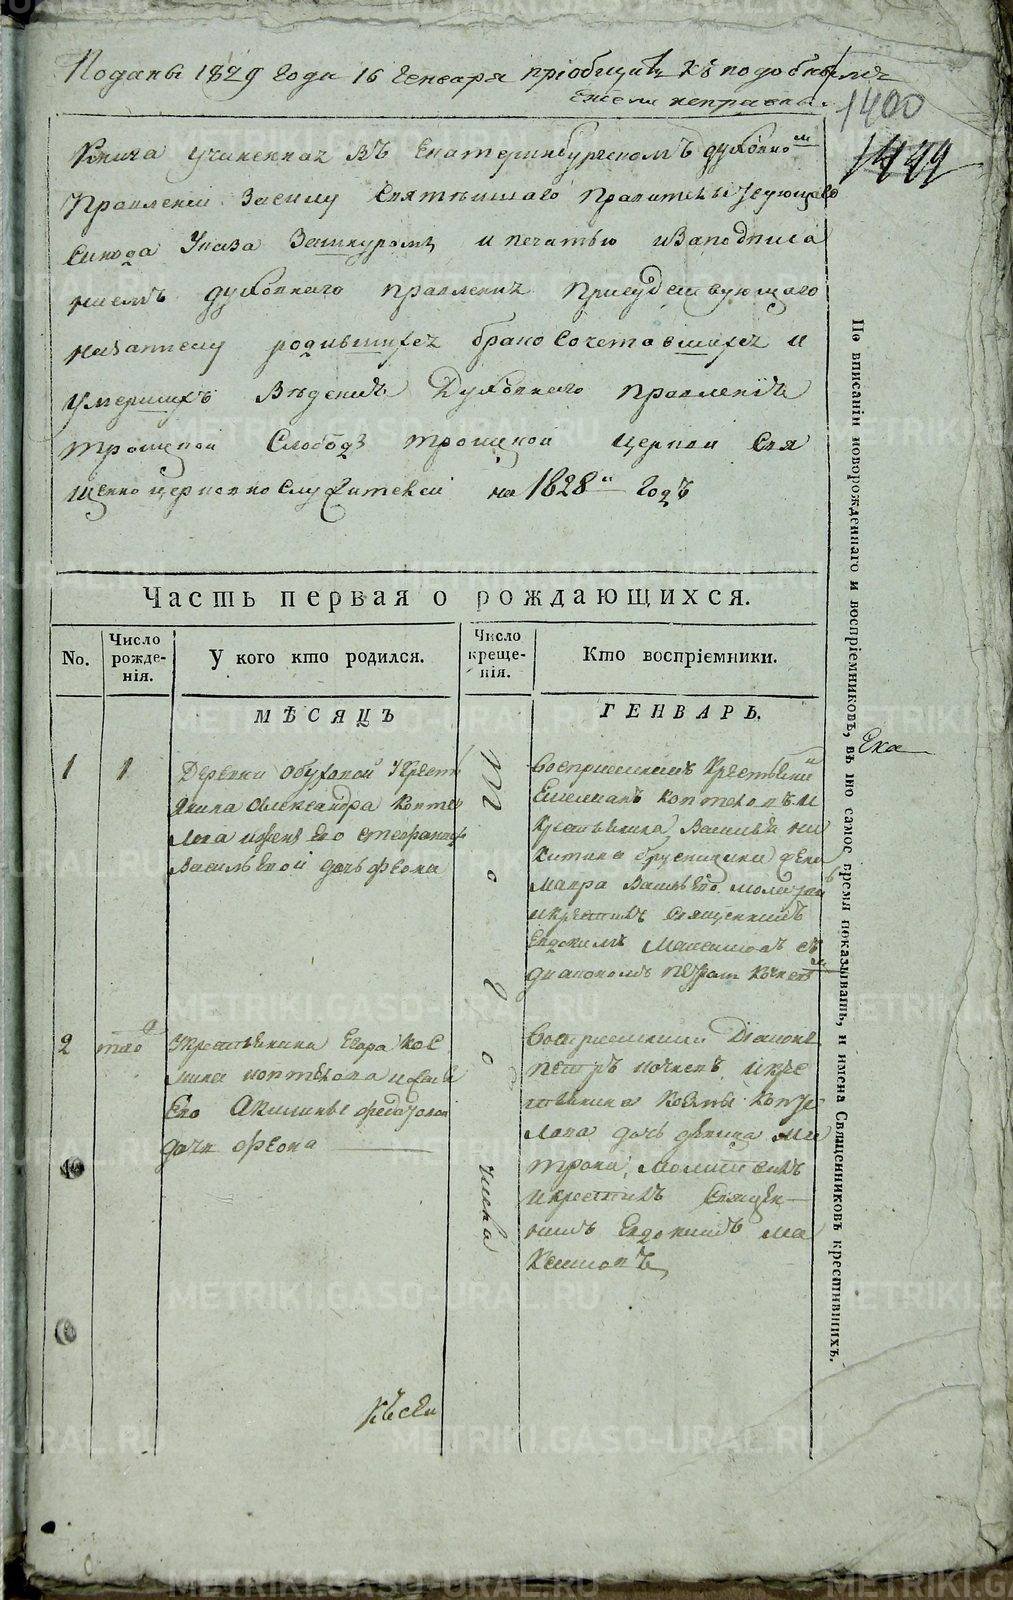 Поданы 1829 Года 16 Генваря пріобщить Къ подобнымъ
1400
1449
Книга учиненная Въ Екатеринбургскомъ духовномъ
Правлении Засилу Святѣйшаго Правительствующаго
Синода Указа Зашнуромъ и печатью изаподписа
ниемъ духовнаго правления Присудствующаго
Назаписку родившихся бракосочетавшихся и
умершихъ Вѣдения Духовнаго правлениѣ
Троицкой Слободѣ троицкой церкви Свя
щенноцерковнослужителей на 1828й Годъ
Часть первая о рождающихся.
No.
Число рожденія.
У кого кто родился.
Число крещенія.
Кто воспріемники.
МѢСЯЦЪ
ГЕНВАРЬ.
1
1
Деревни Обуховой укресть
янина Александра Коптѣ
лова ижены Его Стефаниды
Васильевой дочь Феона
Того
числа
Восприемникъ Крестьянинъ
Емелианъ Коптеловъ и
Крестьянина Василья Ни
китина Брусницына дочь
Мавра Василева молитвилъ
икрестилъ Священникъ
Евдокимъ Максимовъ съ
диакономъ Петромъ
2
того
укрестьянина Егора Кос
мина коптелова ижены
Его Акилины Федоровой
дочь Феона
Восприемники Диаконъ
Петръ икре
стьянина Космы Копте
лова дочь девица Ма
трона, молитвилъ
икрестилъ Священ
никъ Евдокимъ Ма
ксимовъ
Ека
По вписаніи новорожденнаго и воспріемниковъ, въ то самое время показывать, и имена Священниковъ крестившихъ.
METRIKI.GASO-URAL.RU